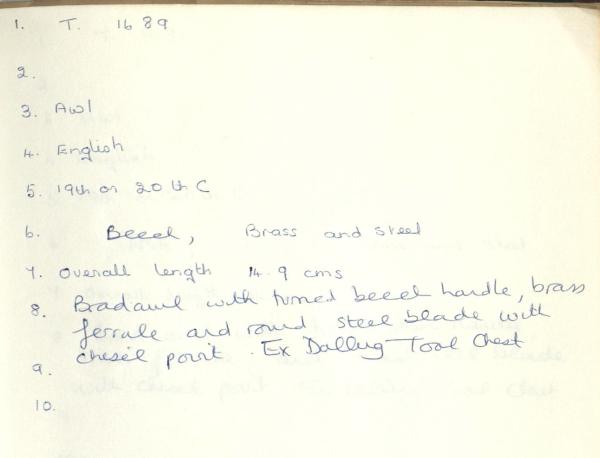 1. T. 1689
2.
3. Awl
4. English
5. 19th or 20th C
6. Beech, Brass and Steel
7. Overall length 14.9 cms
8. Bradawl with turned beech handle, brass
ferrule and round steel blade with
chisel point. Ex Dalling Tool Chest
9.
10.